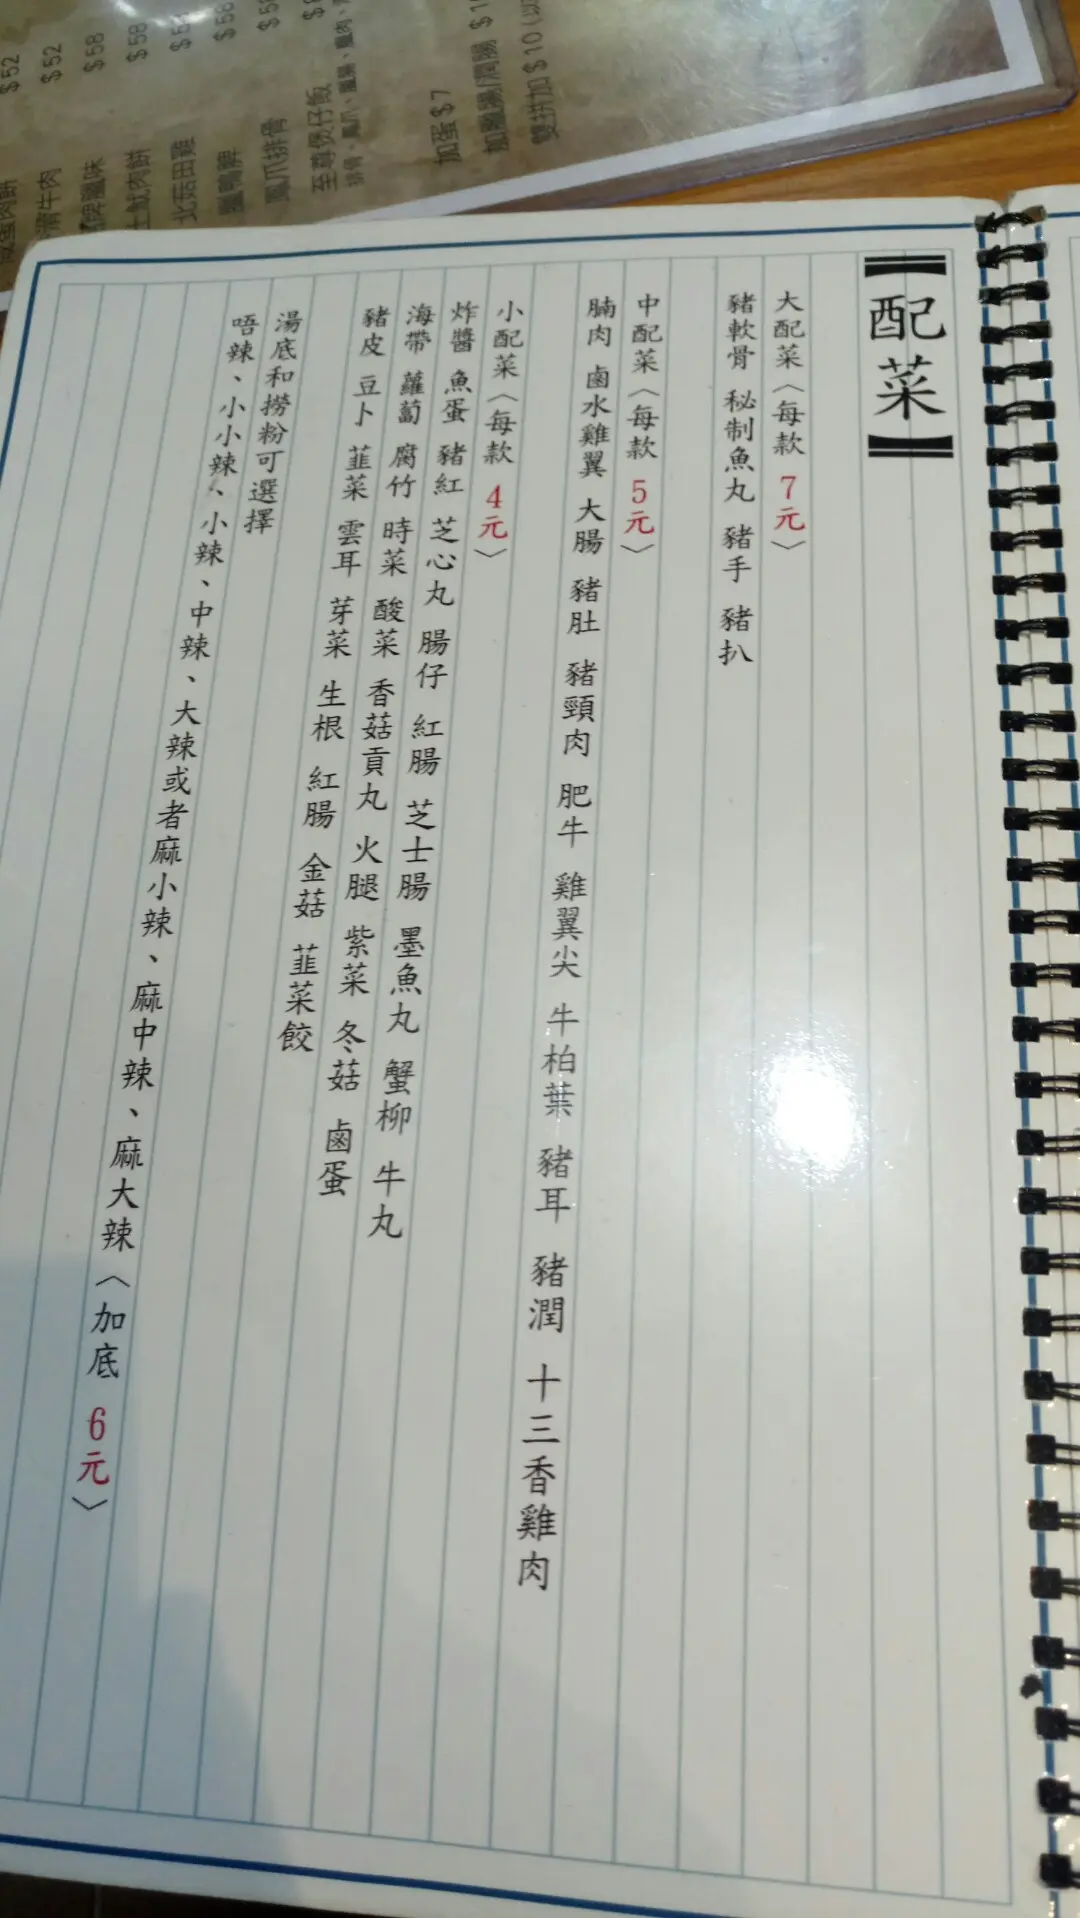 【配菜】
大配菜〈每款 7元〉
豬軟骨 秘制魚丸 豬手 豬扒
中配菜〈每款 5元〉
腩肉 鹵水雞翼 大腸 豬肚 豬頸肉 肥牛 雞翼尖 牛柏葉 豬耳 豬潤 十三香雞肉
小配菜〈每款 4元〉
炸醬 魚蛋 豬紅 芝心丸 腸仔 紅腸 芝士腸 墨魚丸 蟹柳 牛丸
海帶 蘿蔔 腐竹 時菜 酸菜 香菇貢丸 火腿 紫菜 冬菇 鹵蛋
豬皮 豆卜 韮菜 雲耳 芽菜 生根 紅腸 金菇 韮菜餃
湯底和撈粉可選擇
唔辣、小小辣、小辣、中辣、大辣或者麻小辣、麻中辣、麻大辣〈加底 6元〉
$52
滑牛肉 $52
臘味 $58
土魷肉餅 $58
北菇田雞
臘鴨髀 $58
鳳爪排骨
至尊煲仔飯
排骨、鳳爪、臘腸、臘肉、
加蛋 $7
加臘腸/潤腸
雙拼加 $10